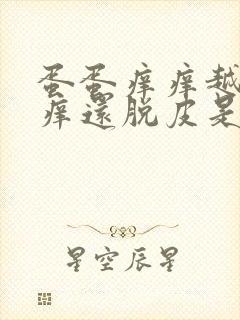 蛋蛋痒痒越
痒還脱皮是
星空辰星